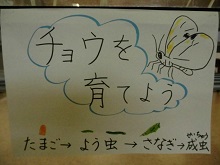 チョウを
育てよう
せいちゅう
たまご→よう虫→さなぎ→成虫